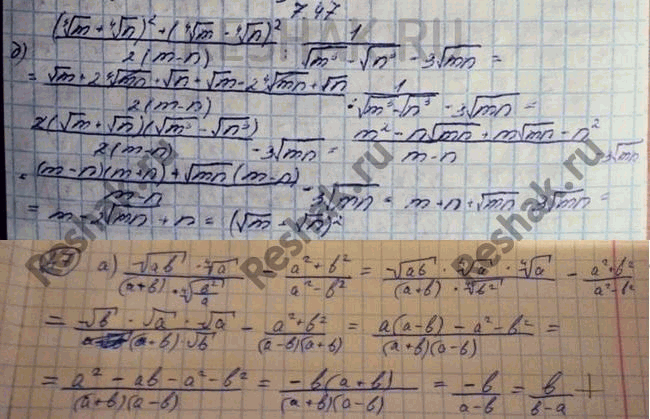 7.47
б) ((⁴√m + ⁴√n)² + (⁴√m - ⁴√n)²) / (2(m-n)) : 1 / (√m³ - √n³) - 3√mn =
= (√m + 2⁴√mn + √n + √m - 2⁴√mn + √n) / (2(m-n)) : 1 / (√m³ - √n³) - 3√mn =
2(√m + √n)(√m³ - √n³) / (2(m-n)) - 3√mn = (m² - n√mn + m√mn - n²) / (m-n) - 3√mn
= ((m-n)(m+n) + √mn(m-n)) / (m-n) - 3√mn = m + n + √mn - 3√mn =
= m - 2√mn + n = (√m - √n)²
а) (√ab · ⁴√a) / ((a+b) · ⁴√(b²/a)) - (a²+b²) / (a²-b²) = (√ab · ⁴√a · ⁴√a) / ((a+b) · ⁴√b²) - (a²+b²) / (a²-b²)
= (√b · √a · √a) / ((a+b) √b) - (a²+b²) / ((a-b)(a+b)) = (a(a-b) - a² - b²) / ((a+b)(a-b)) =
= (a² - ab - a² - b²) / ((a+b)(a-b)) = -b(a+b) / ((a+b)(a-b)) = -b / (a-b) = b / (b-a) +
Reshak.ru